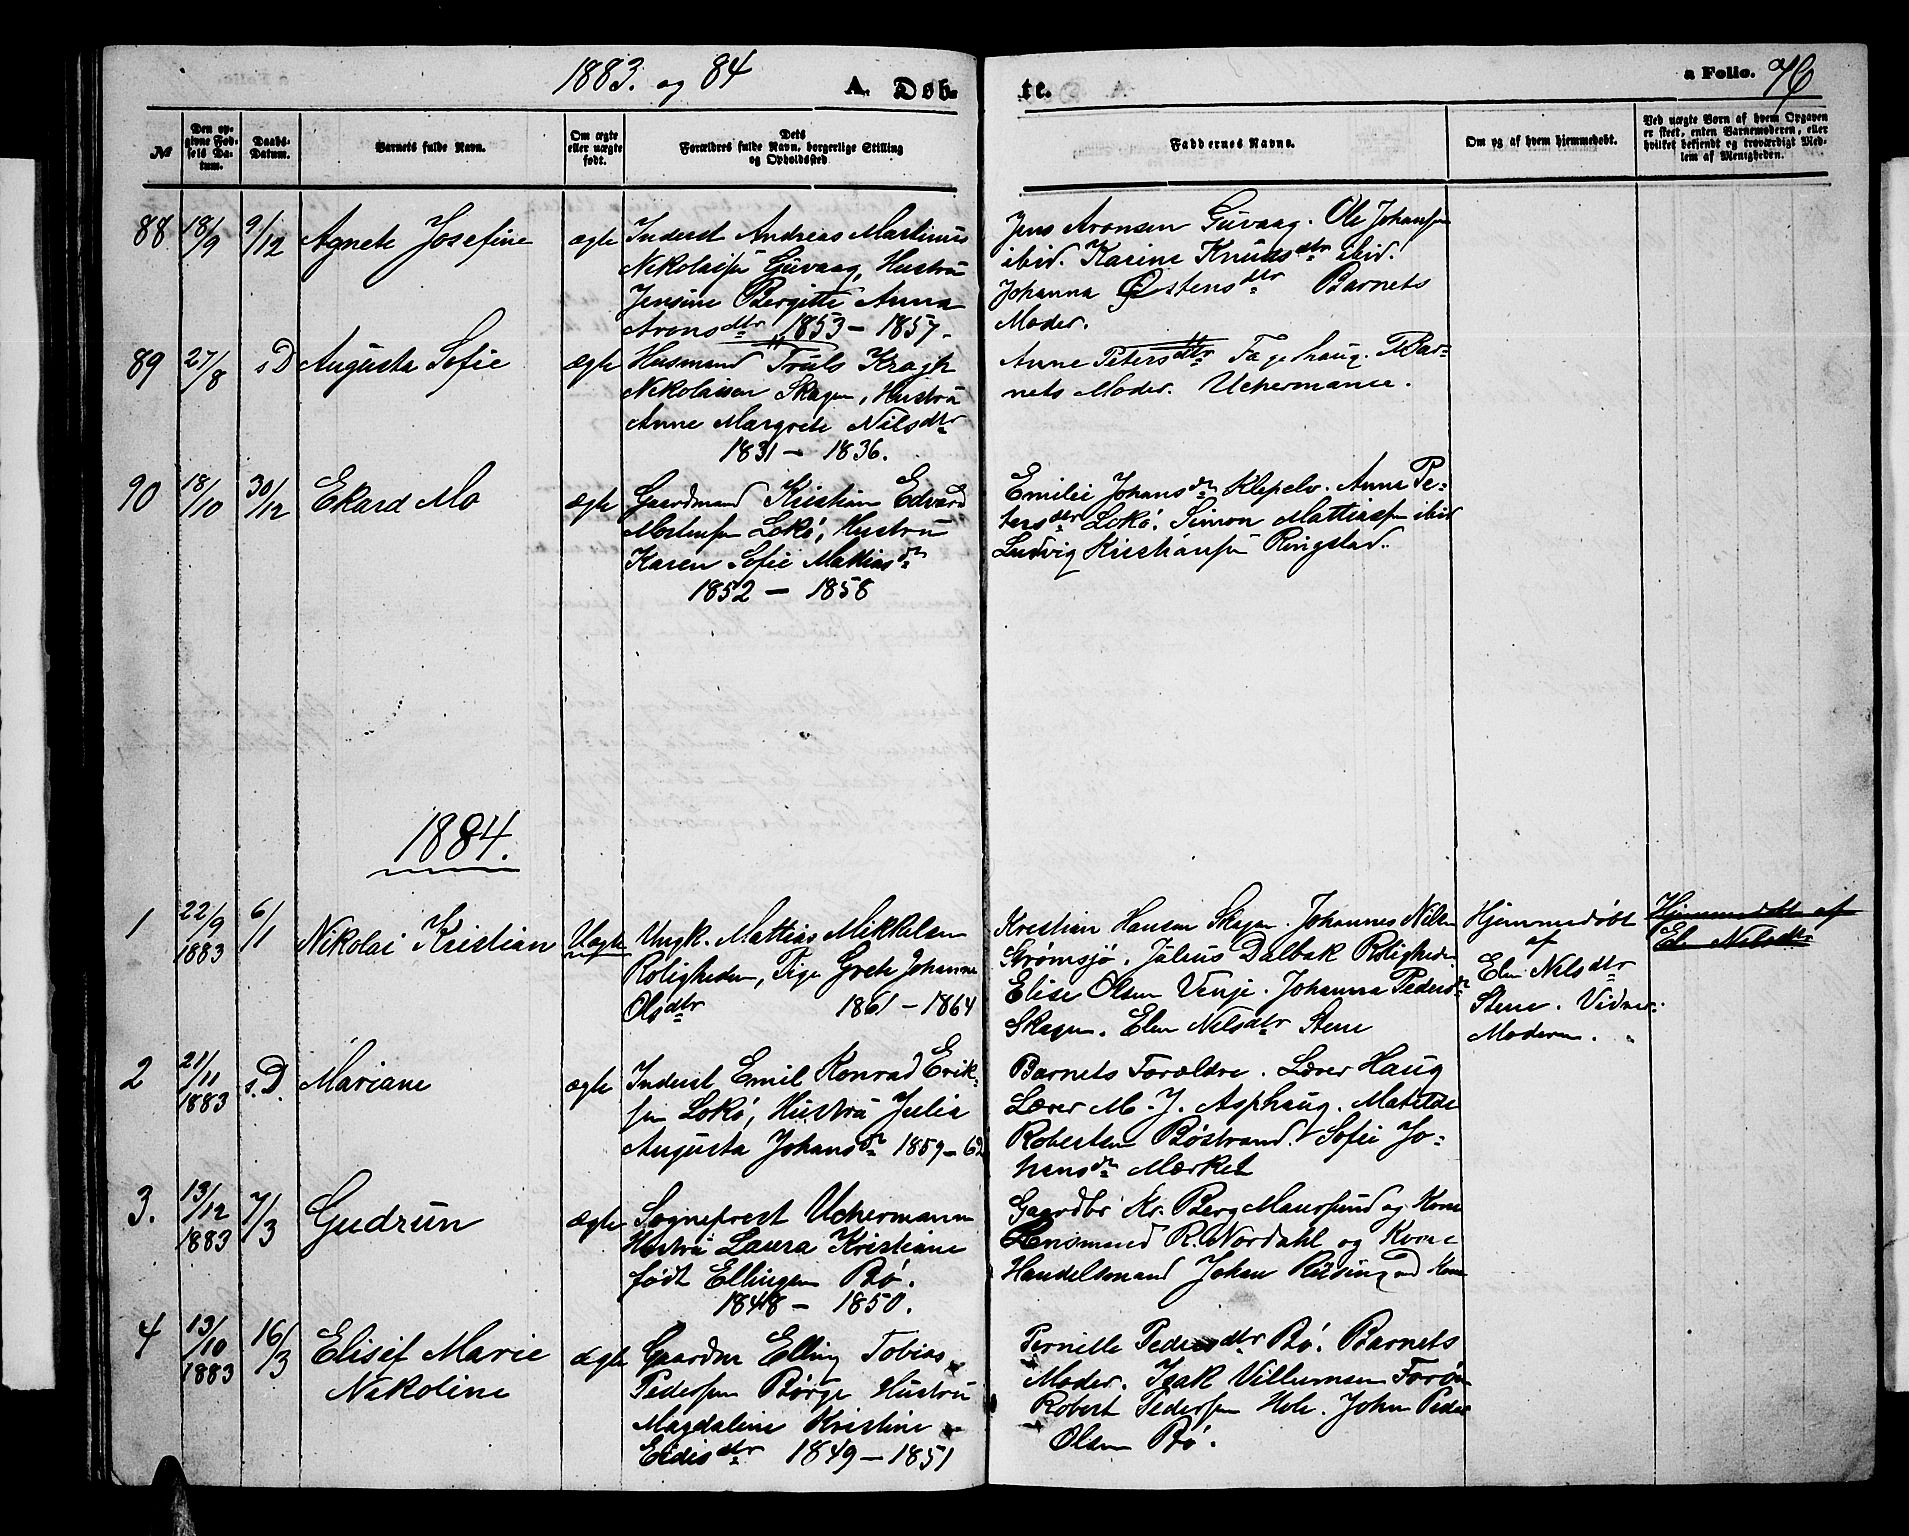 1883. og 84
A. Døb-
te.
a Folio. 76
№
Den op-
givne Fød-
sels Da-
tum.
Daabs-
Datum.
Barnets fulde Navn.
Om ægte
eller uægte
født.
Dets
Forældres fulde Navn, borgerlige Stilling
og Opholdssted
Faddernes Navne.
Om og af hvem hjemmedøbt.
Ved uægte Børn af hvem Opgaven
er skeet, enten Barnemoderen, eller
hvilket bekjendt og troværdigt Med-
lem af Menigheden.
88 18/9 9/12 Agnete Josefine ægte
Inderst Andreas Martinus
Nikolaisen Guvaag, Hustru
Jensine Bergitte Anna
Aronsdtr 1853 - 1857.
Jens Aronsen Guvaag. Ole Johansen
ibid. Karine Knudsdtr ibid.
Johanna Østensdtr Barnets
Moder.
89 27/8 s.D Augusta Sofie ægte
Husmand Truls Kragh
Nikolaisen Skagen, Hustru
Anne Margrete Nilsdtr
1831 - 1836.
Anne Petersdtr Tagehaug. Bar-
nets Moder. Uchermann.
90 18/10 30/12 Ekard Mo ægte
Gaardmand Kristian Edvard
Mortensen Lokø, Hustru
Karen Sofie Mattiasdr
1852 - 1858
Emilie Johansdr Klepelv. Anna Pe-
tersdtr Lokø. Simon Mattiassen ibid
Ludvig Kristiansen Ringstad.
1884.
1 22/9 1883 6/1 Nikolai Kristian Uægte
Ungk. Mattias Mikkelsen
Roligheden, Pige Grete Johanne
Olsdtr 1861 - 1864
Kristian Hansen Skagen. Johannes Nilsen
Strømsjø. Julius Dalbak Roligheden
Elise Olsen Venje. Johanna Pedersdr
Skagen. Elen Nilsdtr Stene
Hjemmedøbt
af
Elen Nilsdtr
Stene. Vidner:
Moderen.
Hjemmedøbt af
Elen Nilsdtr
2 21/11 1883 s.D. Mariane ægte
Inderst Emil Konrad Erik-
sen Lokø, Hustru Julia
Augusta Johansdr 1859 - 62
Barnets Forældre. Lærer Haug
Lærer M. J. Asphaug. Matilde
Robertsen Bøstrand. Sofie Jo-
hansdr Mærket
3. 13/12 1883 7/3 Gudrun ægte
Sognepræst Uchermann
Hustru Laura Kristiane
født Ellingsen Bø.
1848 - 1850.
Gaardbr Kr. Berg Maursund og Kone
Lensmand R. Nordahl og Kone
Handelsmand Johan Rüsing og Kone
4 13/10 1883 16/3 Elisef Marie ægte
Nikoline
Gaardm Elling Tobias
Pedersen Børge Hustru
Magdaline Kristine
Eidisdtr 1849 - 1851
Pernille Pedersdtr Bø. Barnets
Moder. Isak Villumsen Forøen
Robert Pedersen Hole. John Peder
Olsen Bø.